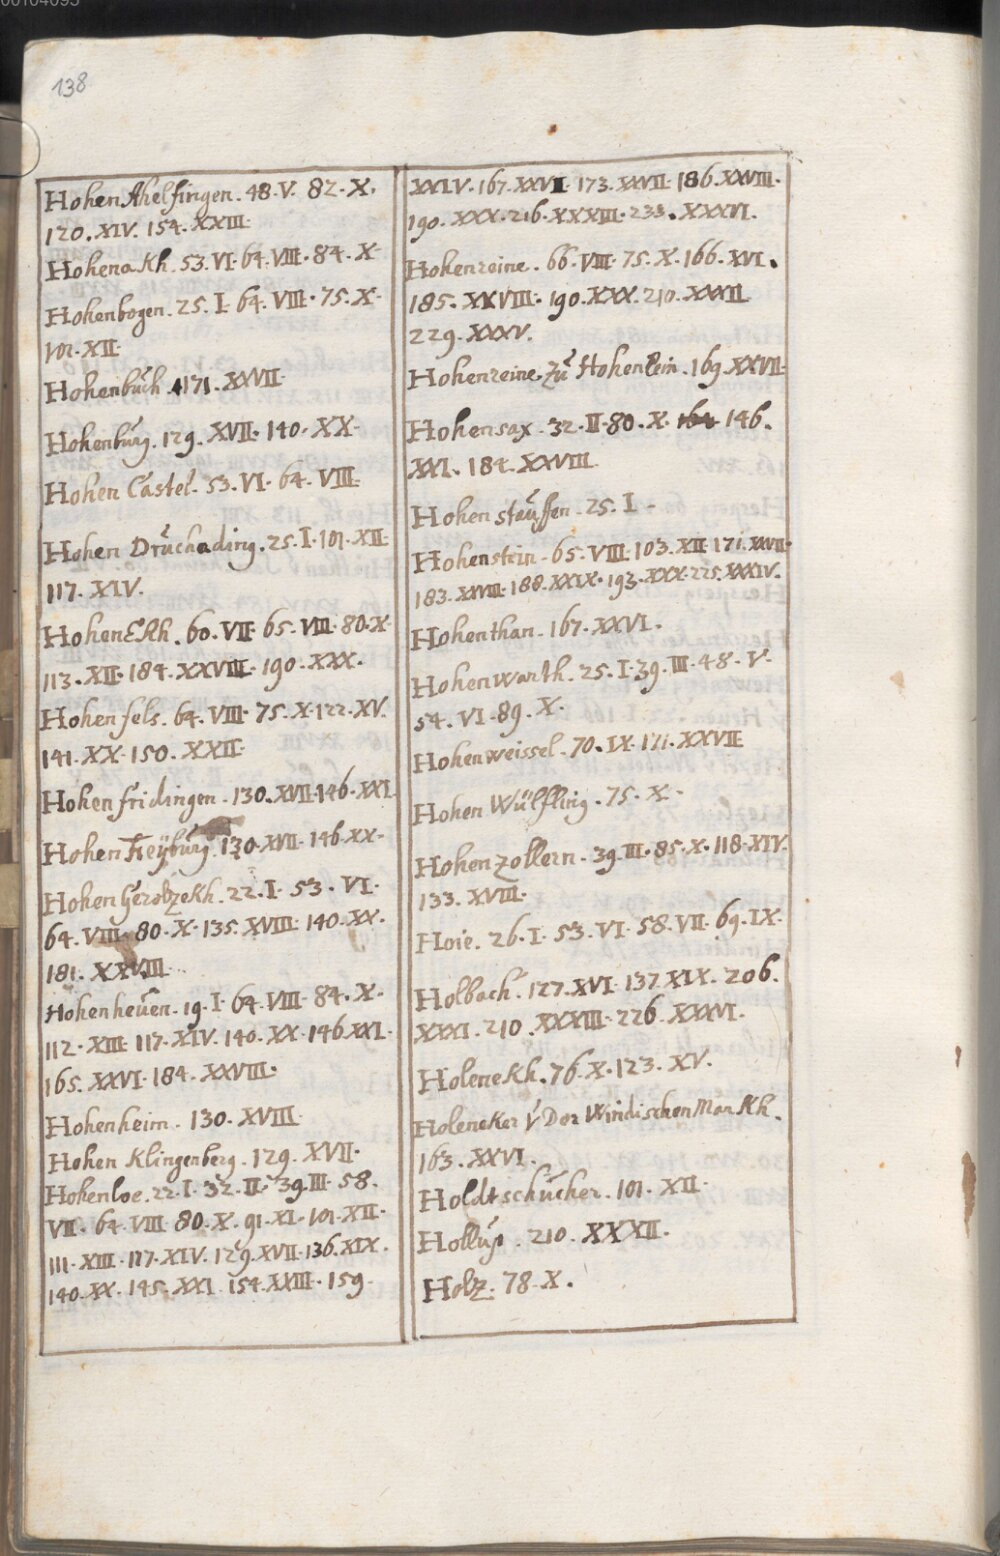 138
Hohen Ahelfingen. 48. V. 82. X.
120. XIV. 154. XXIII.
Hohenakh. 53. VI. 64. VIII. 84. X.
Hohenbogen. 25. I. 64. VIII. 75. X.
101. XII.
Hohenbúch. 171. XXVII.
Hohenbúrg. 129. XVII. 140. XX.
Hohen Castel. 53. VI. 64. VIII.
Hohen Drúchading. 25. I. 101. XII.
117. XIV.
Hohen Ekh. 60. VII. 65. VIII. 80. X.
113. XII. 184. XXVIII. 190. XXX.
Hohenfels. 64. VIII. 75. X. 122. XV.
141. XX. 150. XXII.
Hohenfridingen. 130. XVII. 146. XXI.
Hohen Freÿburg. 130. XVII. 146. XX.
Hohen Gerolzekh. 22. I. 53. VI.
64. VIII. 80. X. 135. XVIII. 140. XX.
181. XXVIII.
Hohenheúen. 19. I. 64. VIII. 84. X.
112. XIII. 117. XIV. 140. XX. 146. XXI.
165. XXVI. 184. XXVIII.
Hohenheim. 130. XVIII.
Hohen Klingenberg. 129. XVII.
Hohenloe. 22. I. 32. II. 39. III. 58.
VII. 64. VIII. 80. X. 91. XI. 101. XII.
111. XIII. 117. XIV. 129. XVII. 136. XIX.
140. XX. 145. XXI. 154. XXIII. 159.
XXIV. 167. XXVI. 173. XXVII. 186. XXVIII.
190. XXX. 216. XXXIII. 233. XXXVI.
Hohenreine. 66. VIII. 75. X. 166. XVI.
185. XXVIII. 190. XXX. 210. XXXII.
229. XXXV.
Hohenreine. zú Hohenlein. 169. XXVII.
Hohensax. 32. II. 80. X. 164 146.
XXI. 184. XXVIII.
Hohenstaúffen. 25. I.
Hohenstein. 65. VIII. 103. XII. 171. XXVII.
183. XXVIII. 188. XXIX. 193. XXX. 225. XXXIV.
Hohenthan. 167. XXVI.
Hohenwarth. 25. I. 39. III. 48. V.
54. VI. 89. X.
Hohenweissel. 70. IX. 171. XXVII
Hohen Wülfling. 75. X.
Hohenzollern. 39. III. 85. X. 118. XIV.
133. XVIII.
Hoie. 26. I. 53. VI. 58. VII. 69. IX.
Holbach. 127. XVI. 137. XIX. 206.
XXXI. 210. XXXIII. 226. XXXVI.
Holenekh. 76. X. 123. XV.
Holeneker V. Der Windischen Markh.
163. XXVI.
Holdtschúcher. 101. XII.
210. XXXII.
Holz. 78. X.